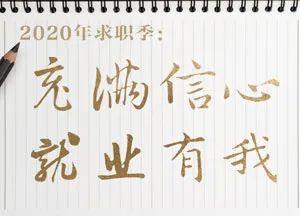 2020年求职季：
充满信心
就业有我